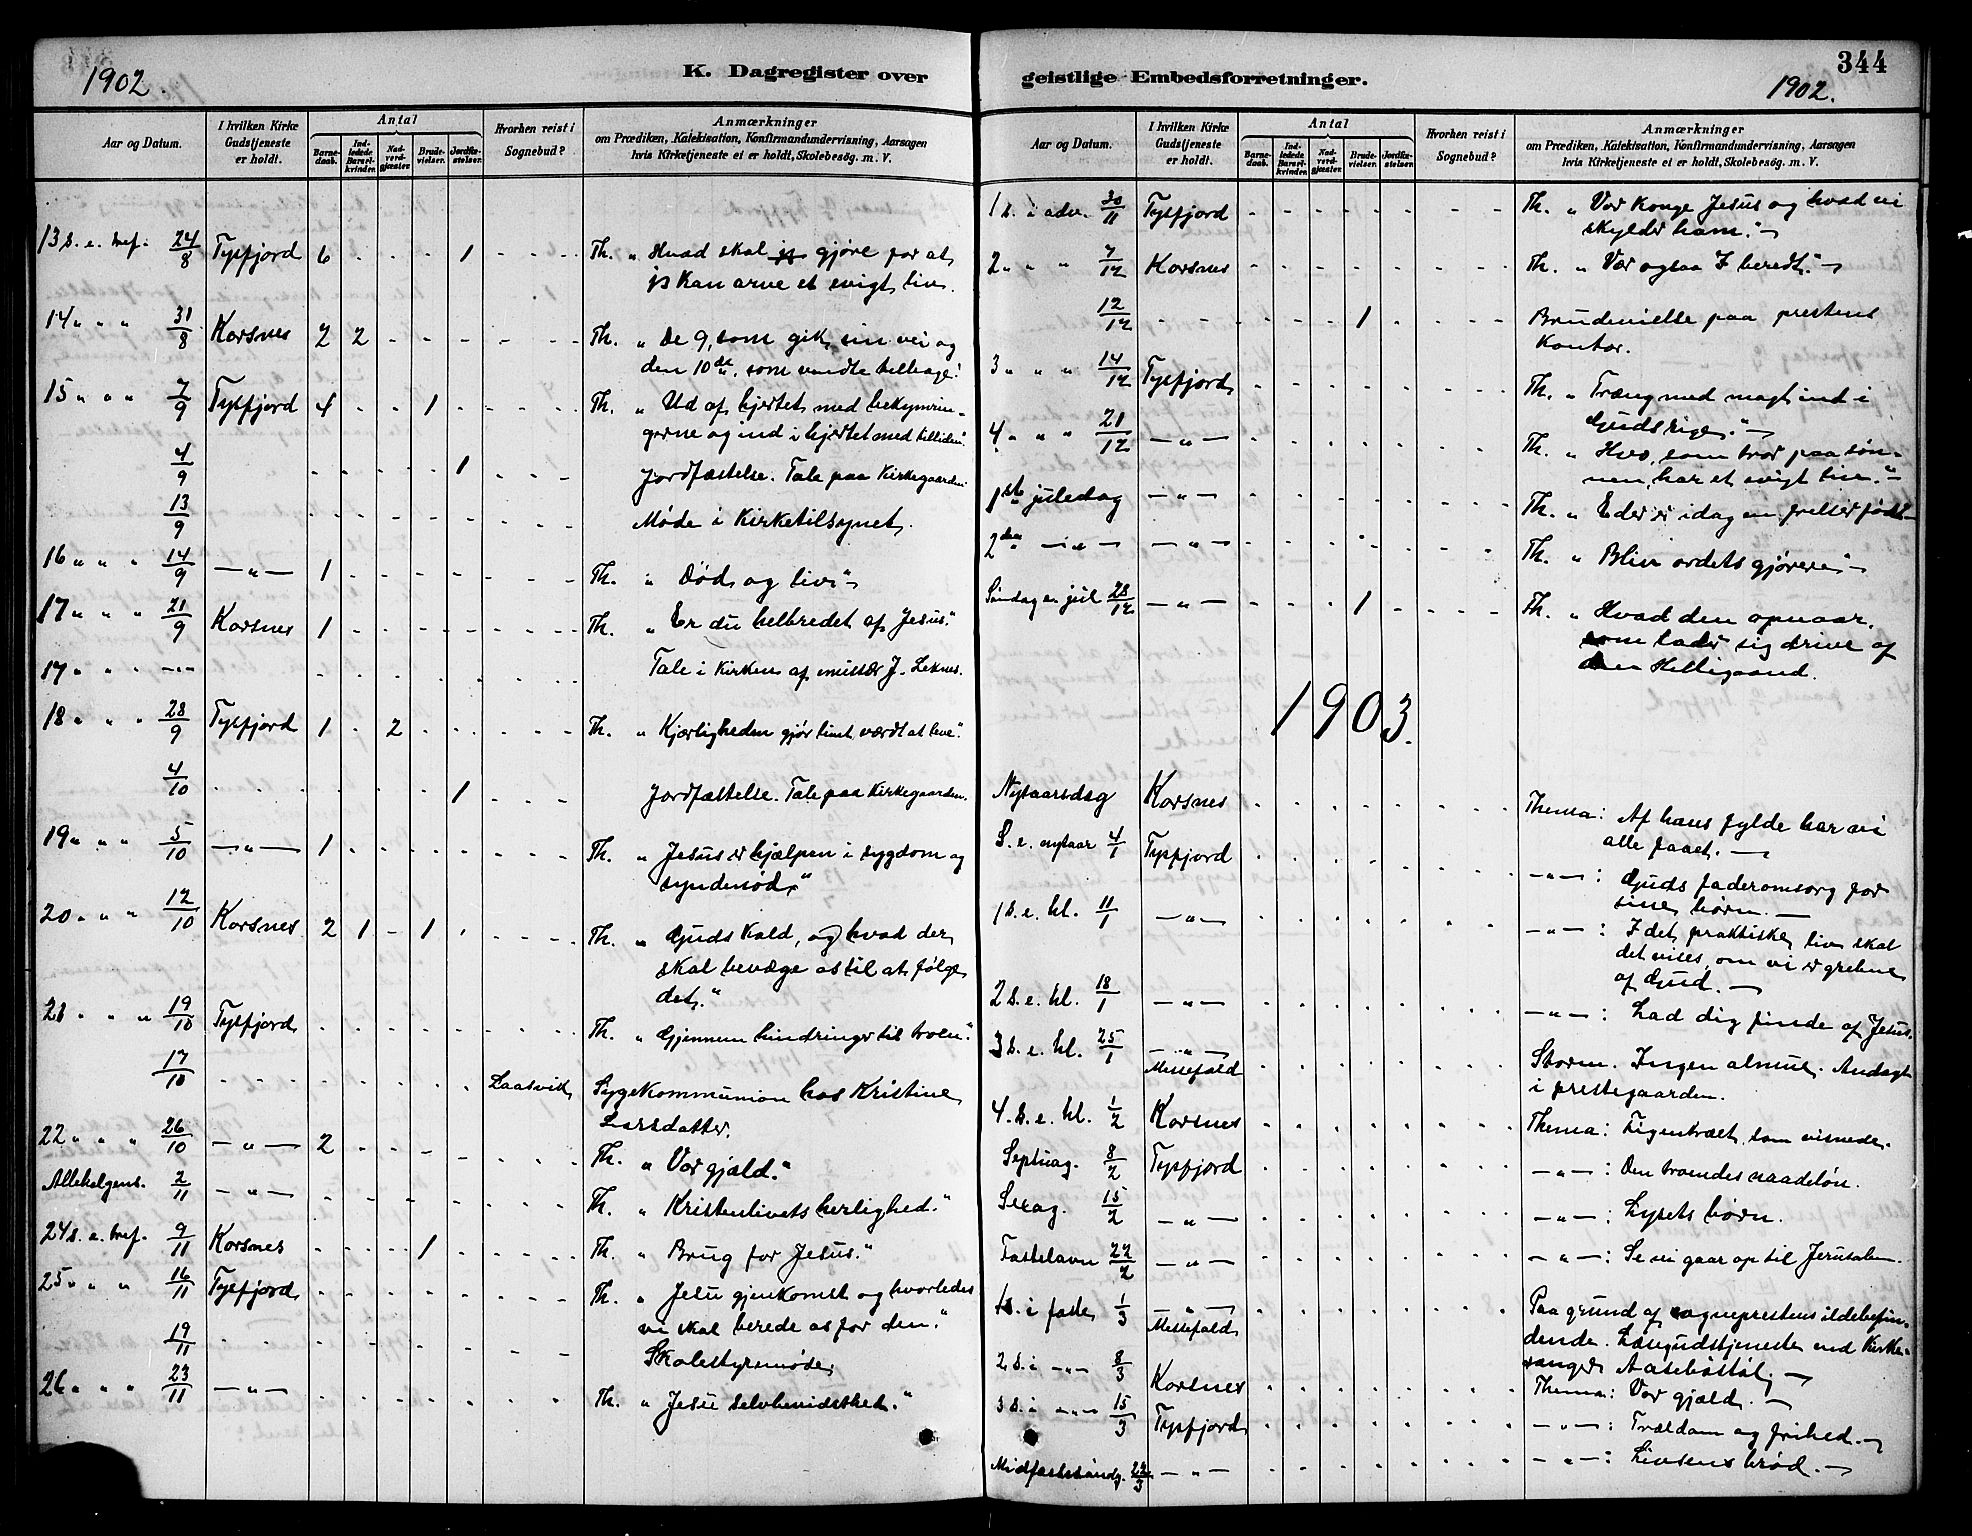 1902.
K. Dagregister over
Aar og Datum.
I hvilken Kirke Gudstjeneste er holdt.
Antal
Barnedaab.
Indledede Barselkvinder.
Nadverdgjæster.
Brudevielser.
Jordfæstelser.
Hvorhen reist i Sognebud?
Anmærkninger
om Prædiken, Katekisation, Konfirmandundervisning, Aarsagen
hvis Kirketjeneste et er holdt, Skolebesøg. m. V.
13 s. e. tref. 24/8 Tysfjord 6 1 Th. „ Hvad skal jeg gjøre for at
jeg kan arve et evigt liv.
14 „ „ „ 31/8 Korsnes 2 2 Th. „ De 9, som gik sin vei og
den 10de, som vendte tilbage."
15 „ „ „ 7/9 Tysfjord 4 1 Th. „ Ud af hjertet med bekymrin-
gerne og ind i hjertet med tilliden"
4/9 1 Jordfæstelse. Tale paa Kirkegaarden.
13/9 Møde i Kirketilsynet.
16 „ „ „ 14/9 — „ — 1 Th. „ Død og liv."
17 „ „ „ 21/9 Korsnes 1 Th. „ Er du helbredet af Jesus."
17 „ „ „ —„— Tale i Kirken af J. Leknes.
18 „ „ „ 28/9 Tysfjord 1 2 Th. „ Kjærligheden gjør livet værdt at leve."
4/10 1 Jordfæstelse. Tale paa Kirkegaarden.
19 „ „ „ 5/10 — „ — 1 Th. „ Jesus er hjælpen i sygdom og
syndenød."
20 „ „ „ 12/10 Korsnes 2 1 1 Th. „ Guds Kald, og hvad der
skal bevæge os til at følge
det."
21 „ „ „ 19/10 Tysfjord Th. „ Gjennem hindringer til troen."
17/10 Laasvik Sygekommunion hos Kristine
Larsdatter.
22 „ „ „ 26/10 — „ — 2 Th. „ Vor gjæld."
Allehelgens. 2/11 — „ — Th. „ Kristenlivets herlighed."
24 s. e. tref. 9/11 Korsnes 1 Th. „ Brug for Jesus."
25 „ „ „ 16/11 Tysfjord Th. „ Jesu gjenkomst og hvorledes
vi skal berede os for den."
19/11 Skolestyremøde
26 „ „ „ 23/11 — „ — Th. „ Jesu selvbevidsthed."
344
geistlige Embedsforretninger.
1902.
Aar og Datum.
I hvilken Kirke Gudstjeneste er holdt.
Antal
Barnedaab.
Indledede Barselkvinder.
Nadverdgjæster.
Brudevielser.
Jordfæstelser.
Hvorhen reist i Sognebud?
Anmærkninger
om Prædiken, Katekisation, Konfirmandundervisning, Aarsagen
hvis Kirketjeneste et er holdt, Skolebesøg. m. V.
1 s. i adv. 30/11 Tysfjord Th. „ Vor Konge Jesus og hvad vi
skylder ham."—
2 „ „ „ 7/12 Korsnes Th. „ Vær ogsaa I beredt."—
12/12 1 Brudevielse paa prestens
Kontor.
3 „ „ „ 14/12 Tysfjord Th. „ Træng med magt ind i
Guds rige."—
4 „ „ „ 21/12 — „ — Th. „ Hvo, som tror paa søn-
nen, har et evigt liv."—
1ste juledag — „ — Th. „ Eder er idag en frelser født—
2den — „ — — „ — Th. „ Bliv ordets gjørere"—
Søndag e. jul 28/12 — „ — 1 Th. „ Hvad den opnaar,
som lader sig drive af
den Helligaand.
1903.
Nytaarsdag Korsnes Thema: Af hans fylde har vi
alle faaet.—
S. e. nytaar 4/1 Tysfjord —„—: Guds faderomsorg for
sine børn.—
1 s. e. hl. 11/1 — „ — —„—: I det praktiske liv skal
det vises, om vi er grebne
af Gud.—
2 s. e. hl. 18/1 — „ — —„—: Lad dig finde af Jesus.
3 s. e. hl. 25/1 — „ — Messefald Storm. Ingen almue. Andagt
i prestegaarden.
4. s. e. hl. 1/2 Korsnes Thema: Figentræet, som visnede.
Septuag. 8/2 Tysfjord —„—: Den troendes naadeløn.
Sexag. 15/2 — „ — —„—: Lysets børn.
Fastelavn 22/2 — „ — —„—: Se vi gaar op til Jerusalem.
1 s. i faste 1/3 — „ — Messefald Paa grund af sogneprestens ildebefin-
dende. Læsegudstjeneste ved Kirke-
sanger
2 s. i —„— 8/3 Korsnes Thema: Vor gjæld.—
3 s. i —„— 15/3 Tysfjord —„—: Trældom og frihed.—
Midfastesøndg. 22/3 — „ — —„—: Livsens brød.—